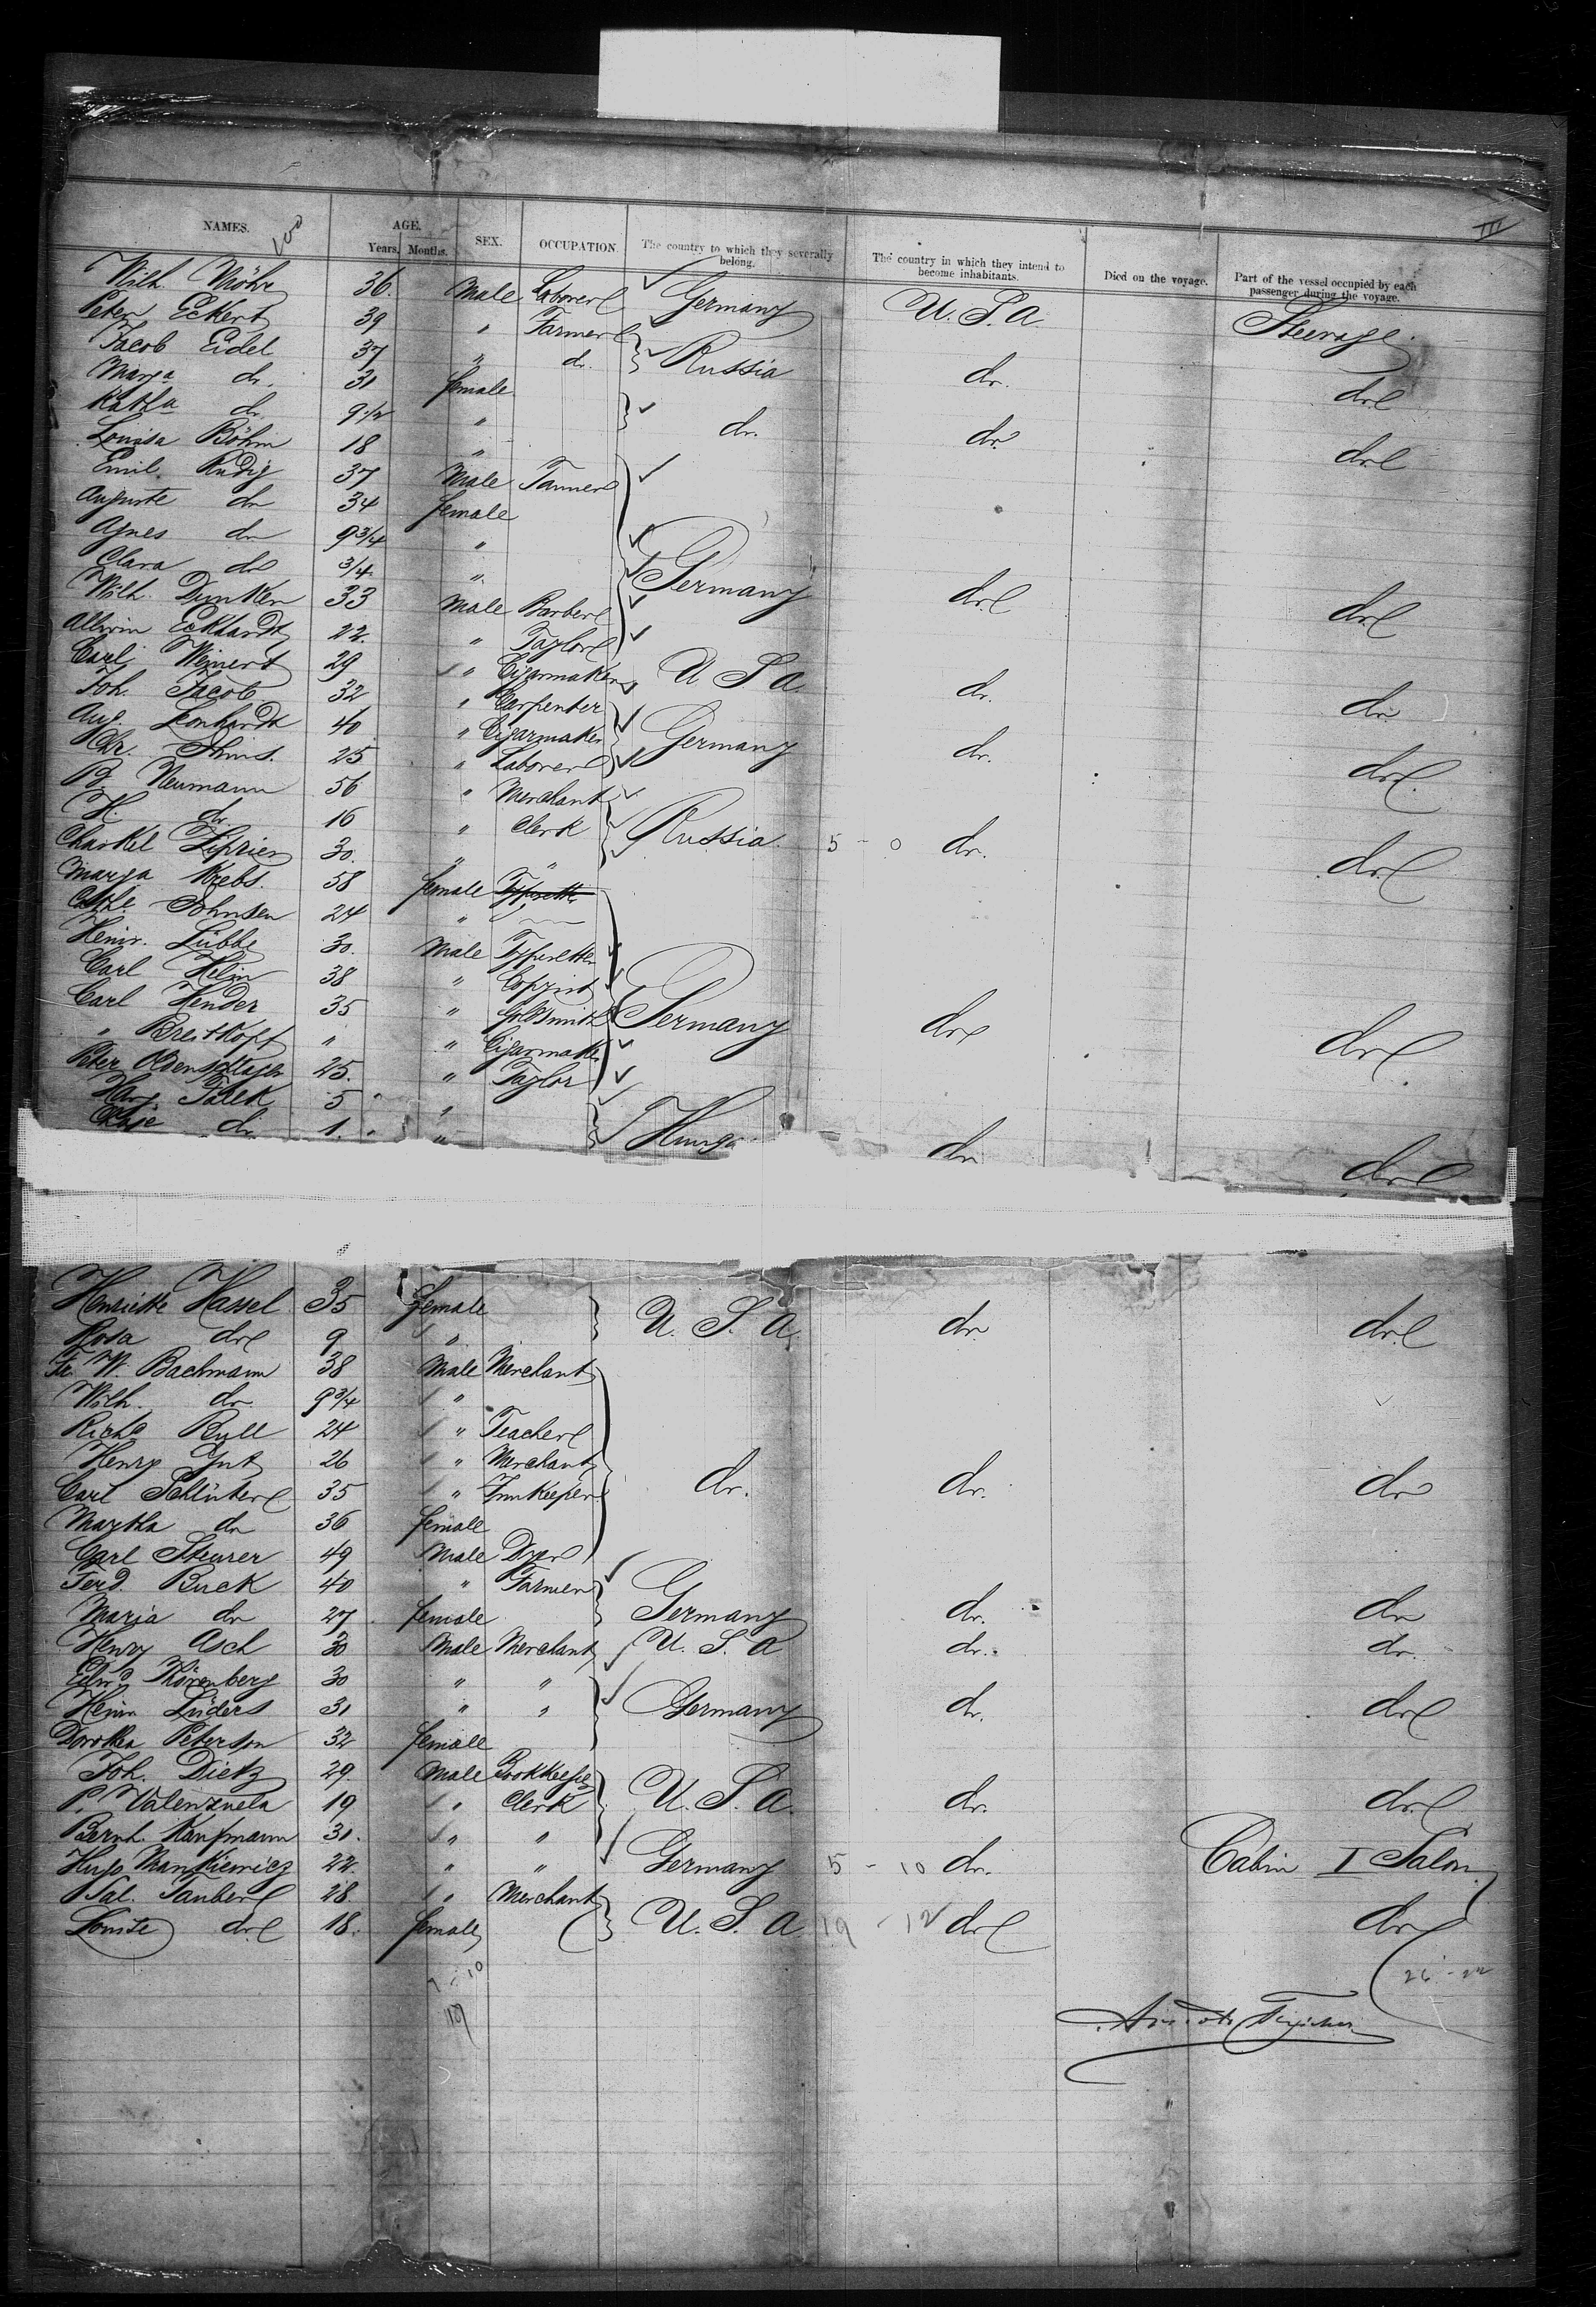 III
NAMES. AGE. SEX. OCCUPATION. The country to which they severally belong. The country in which they intend to become inhabitants. Died on the voyage. Part of the vessel occupied by each passenger during the voyage.
Years. Months.
Wilh. Möhr 36. Male Laborer Germany U. S. A Steerage.
Peter Eckert 39 " Farmer
Jacob Eidel 37 " do. Russia do. do
Marga do. 31 female
Katha do. 9 1/2 " do. do. do
Louisa Böhm 18 "
Emil Rudig 37 Male Tanner
Auguste do 34 female
Agnes do 9 3/4 "
Clara do 3/4 " Germany do do
Wilh. Dynker 33 Male Barber
Albwin Eckhardt 22. " Taylor
Carl Weinert 29 " Cigarmaker U S A do. do
Joh. Jacob 32 " Carpenter
Aug. Leonhardt 40 " Cigarmaker Germany do. do.
Chr. 25 " Laborer
B. Neumann 56 " Merchant
H. do. 16 " Clerk Russia 5 - 0 do. do
Charkel 30. " "
Marga Krebs. 58 female
Johnsen 24 "
Heinr. Lübbe 30. Male Typesetter
Carl Helm 38 " Copyist
Carl Hender 35 " Goldsmith Germany do do
" Breitkopf " " Cigarmaker
Peter 25. " Taylor
Falek 5 "
do. 1. " Hunga do do
Henriette Hassel 35 female U. S. A. do do
Rosa do 9 "
Fr. W. Bachmann 38 Male Merchant
Wilh. do. 9 3/4 "
Richd Bull 24 " Teacher
Henry Gut 26 " Merchant do. do. do
Carl Schlüter 35 " Innkeeper
Martha do 36 female
Carl Steurer 49 Male Dyer
Ferd. Buck 40 " Farmer Germany do. do
Maria do 27 female
Henry Asch 30 Male Merchant U. S. A do. do.
Edw. Körenberg 30 " "
Heinr Lüders 31 " " Germany do. do
Dorothea Peterson 32 female
Joh. Dietz 29. Male Bookkeeper U. S. A. do. do.
P. Valenzuela 19 " Clerk
Bernh. Kaufmann 31. " "
Hugo Mankiewicz 22. " " Germany 5 - 10 do. Cabin I Salon
Sal. Tauber 28. " Merchant U. S. A 19 - 12 do do
Louise do 18. female
7 - 10
26 - 22